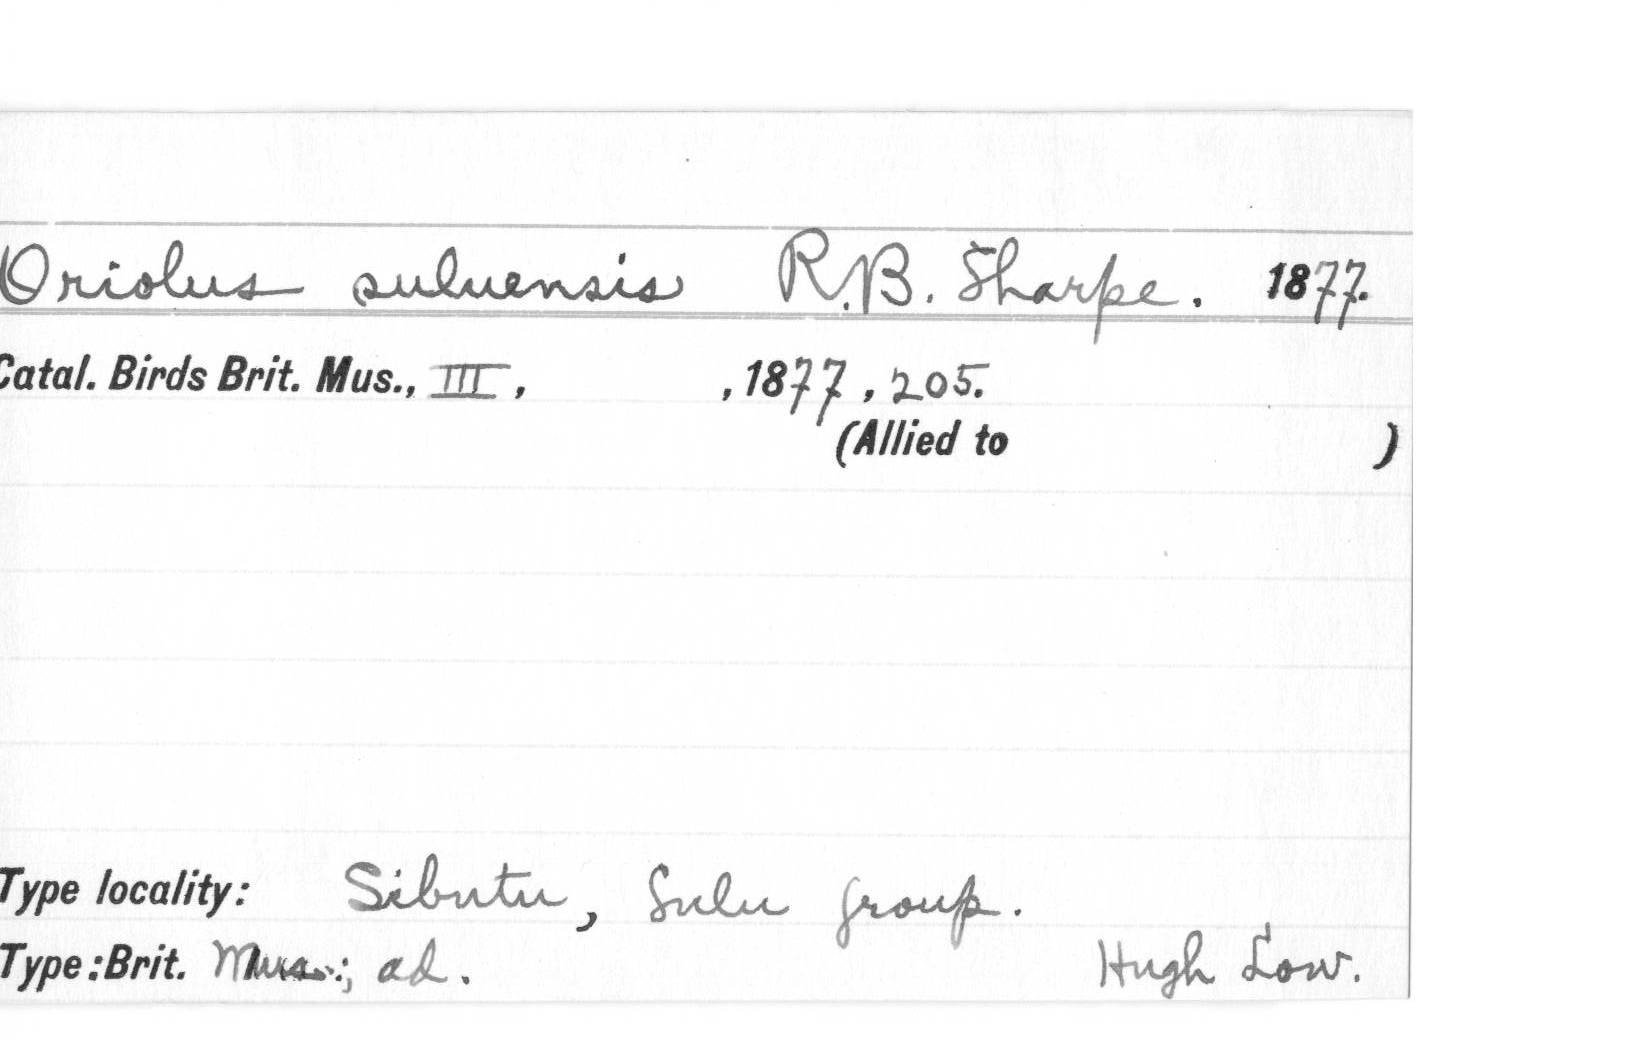 Oriolus suluensis R.B. Sharpe. 1877.
Catal. Birds Brit. Mus., III, , 1877, 205.
(Allied to )
Type locality: Sibutu, Sulu group.
Type: Brit. Mus.; ad. Hugh Low.